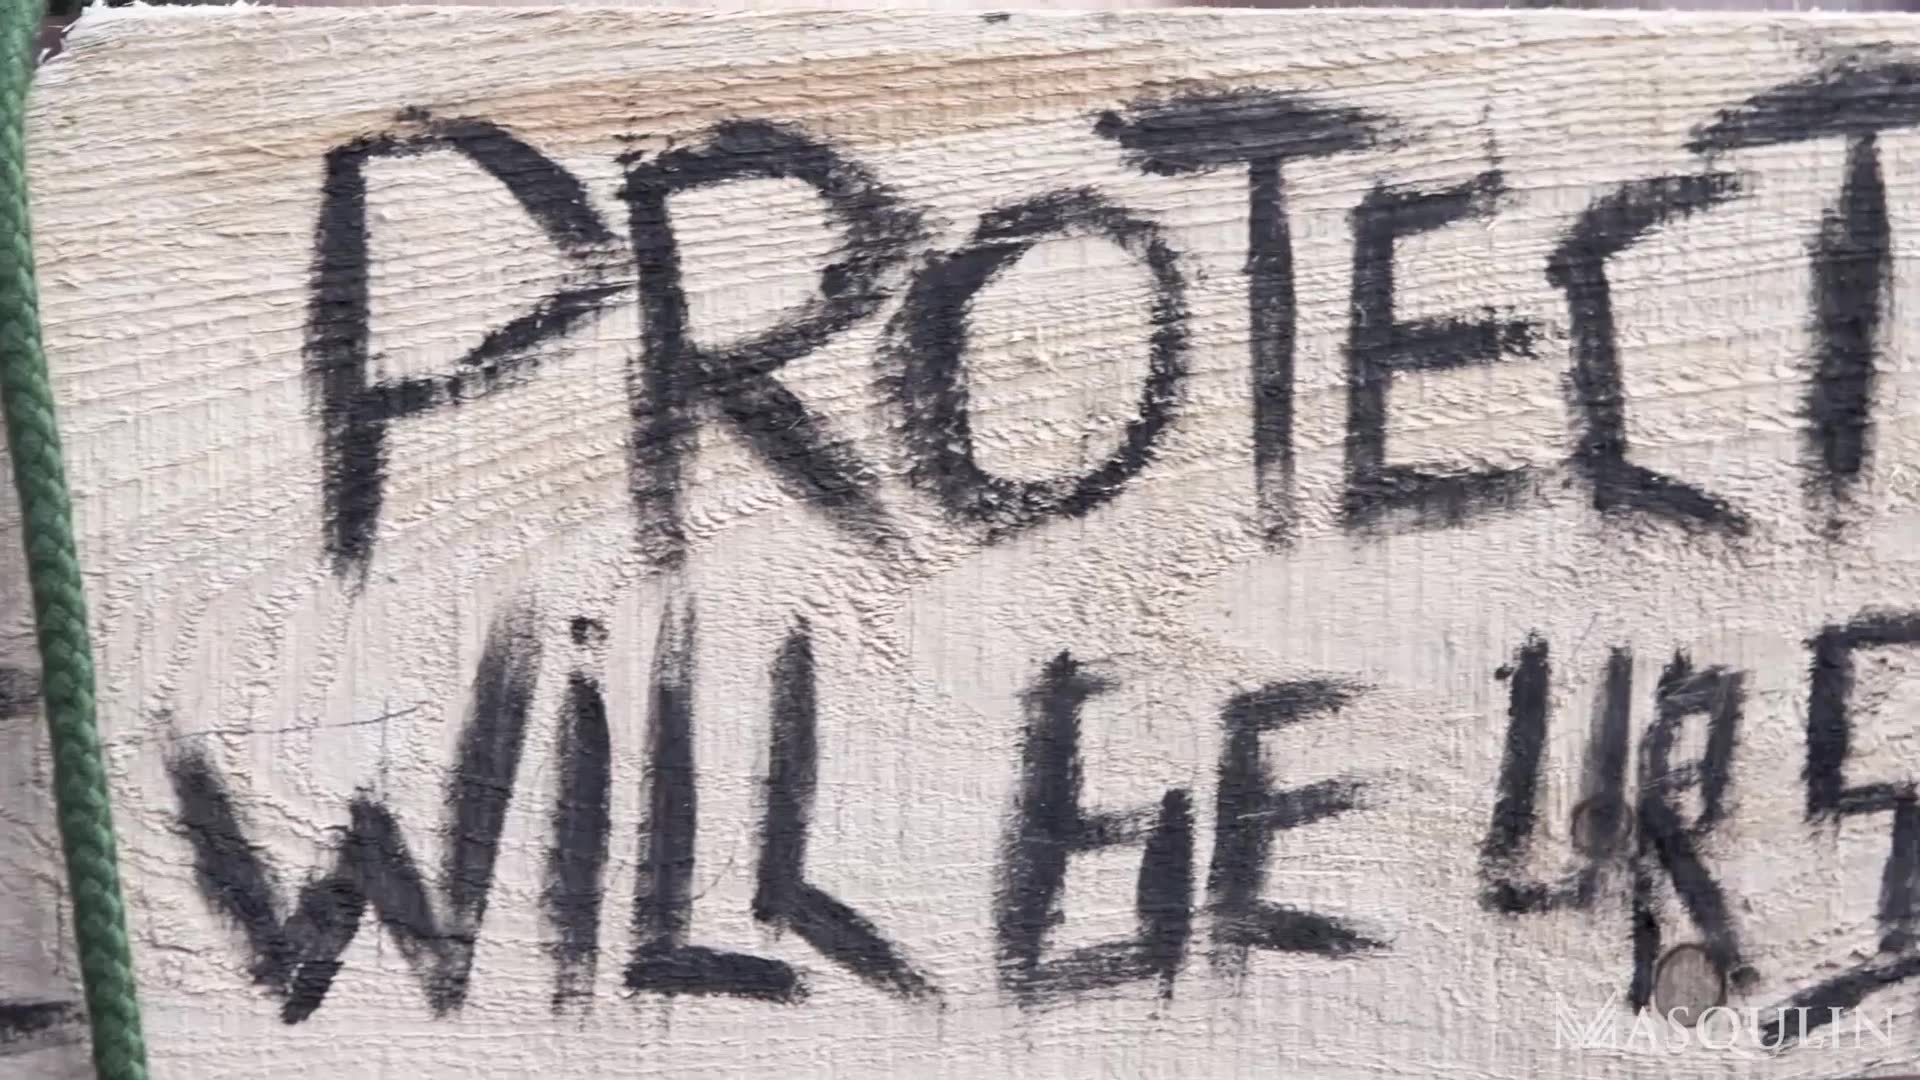 PROTECT
WiLL BE URS
MASQULIN